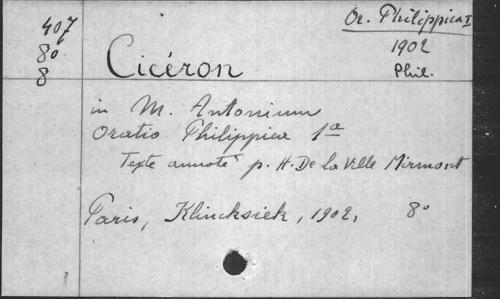 407
8º
8
Or. Philippica I
1902
Phil.
Cicéron
in M. Antonium
Oratio Philippica 1a
Texte annoté p. H. De la Ville Mirmont
Paris, Klincksiek, 1902, 8º